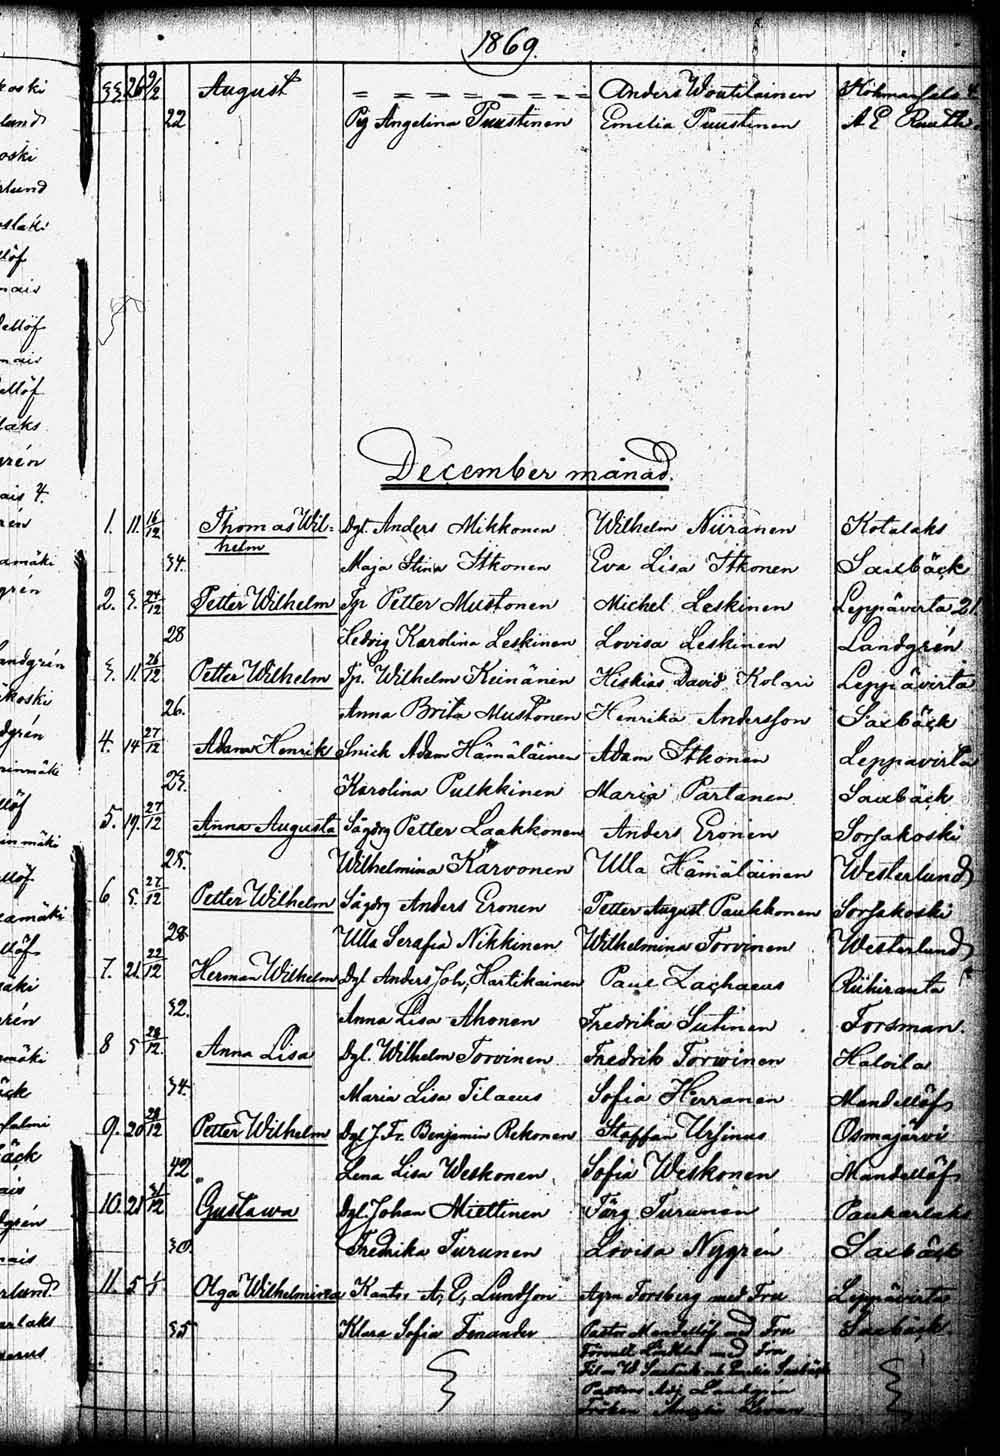 1869.
33. 26 9/2 August Anders Woutilainen
22 Pig Angelina Tuustinen Emelia Tuustinen A E
December månad.
1. 11. 16/12 Thomas Wil- Dgt. Anders Mikkonen Wilhelm Niiranen Kotalaks
helm
34. Maja Stina Itkonen Eva Lisa Itkonen Saxbäck
2. 3. 24/12 Petter Wilhelm Ip Petter Mustonen Michel Leskinen Leppävirta 21.
28 Hedvig Karolina Leskinen Lovisa Leskinen Landgrén
3. 11. 26/12 Petter Wilhelm Ip. Wilhelm Keinänen Hiskias David Kolari Leppävirta
26. Anna Brita Mustonen Henrika Andersson Saxbäck
4. 14 27/12 Adam Henrik Snick Adam Hämäläinen Adam Itkonen Leppävirta
Karolina Pulkkinen Maria Partanen Saxbäck
5. 19. 27/12 Anna Augusta Petter Laakkonen Anders Eronen Sorsakoski
25. Wilhelmina Karvonen Ulla Hämäläinen Westerlund
6 5. 27/12 Petter Wilhelm Anders Eronen Petter August Paukkonen Sorsakoski
28 Ulla Serafia Nikkinen Wilhelmina Torvinen Westerlund
7. 21. 22/12 Herman Wilhelm Dgl Anders Joh, Hartikainen Paul Zachaeus Riihiranta
32. Anna Lisa Ahonen Fredrika Sutinen Forsman.
8 5 28/12 Anna Lisa Dgl. Wilhelm Torvinen Fredrik Torwinen Halvila
34. Maria Lisa Tilaeus Sofia Herranen Mandellöf
9. 20 28/12 Petter Wilhelm Dgl J. Fr. Benjamin Rekonen Staffan Ursinus Osmajärvi
42 Lena Lisa Weskonen Sofia Weskonen Mandellöf
10. 21 31/12 Gustawa Dgl. Johan Miettinen Färg Turunen Paukarlaks
30. Fredrika Turunen Lovisa Nygrén Saxbäck
11. 5 Olga Wilhelmina Kantor A, E, Lundson Agrn Forsberg med Fru Leppävirta
35 Klara Sofia Fenander Pastor Mandellöf med Fru Saxbäck
med Fru
Pastors Adj. Landgrén
Fröken